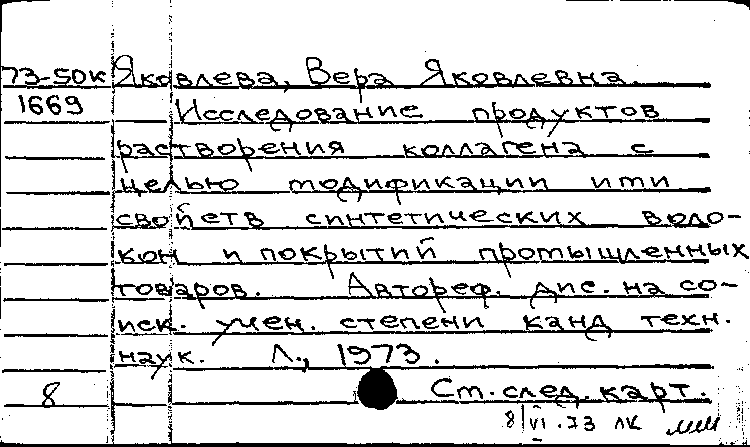 73-50к Яковлева, Вера Яковлевна.
1669 Исследование продуктов
растворения коллагена с
целью модификации ими
свойств синтетических воло-
кон и покрытий промышленных
товаров. Автореф. дис. на со-
иск. учен. степени канд техн.
наук. Л., 1973.
8 См. след. карт.
8/VI.73 ЛК